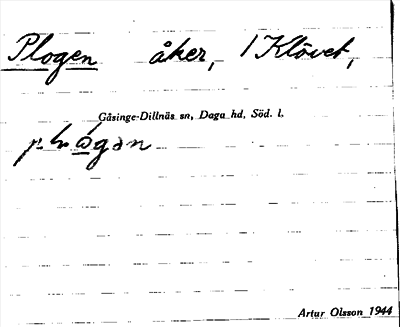 Plogen åker, 1 Klövet,
Gåsinge-Dillnäs sn, Daga hd, Söd. l.
Artur Olsson 1944